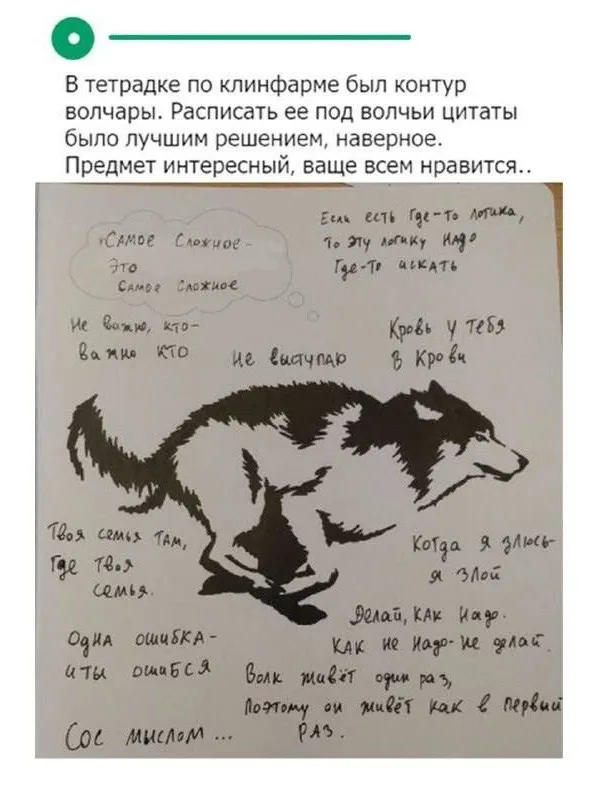 В тетрадке по клинфарме был контур
волчары. Расписать ее под волчьи цитаты
было лучшим решением, наверное.
Предмет интересный, ваще всем нравится..
Самое Сложное -
Это
Самое Сложное
Если есть Где-то логика,
То эту логику надо
Где-то искать
Не важно, кто -
важно кто
Не выступаю
Кровь у тебя
в крови
Твоя семья там,
Где твоя
семья.
Когда я злюсь -
я злой
Делай, как надо.
Как не надо - не делай.
Одна ошибка -
и ты ошибся
Волк живёт один раз,
Поэтому он живёт как в первый
раз.
Сос мыслом ...